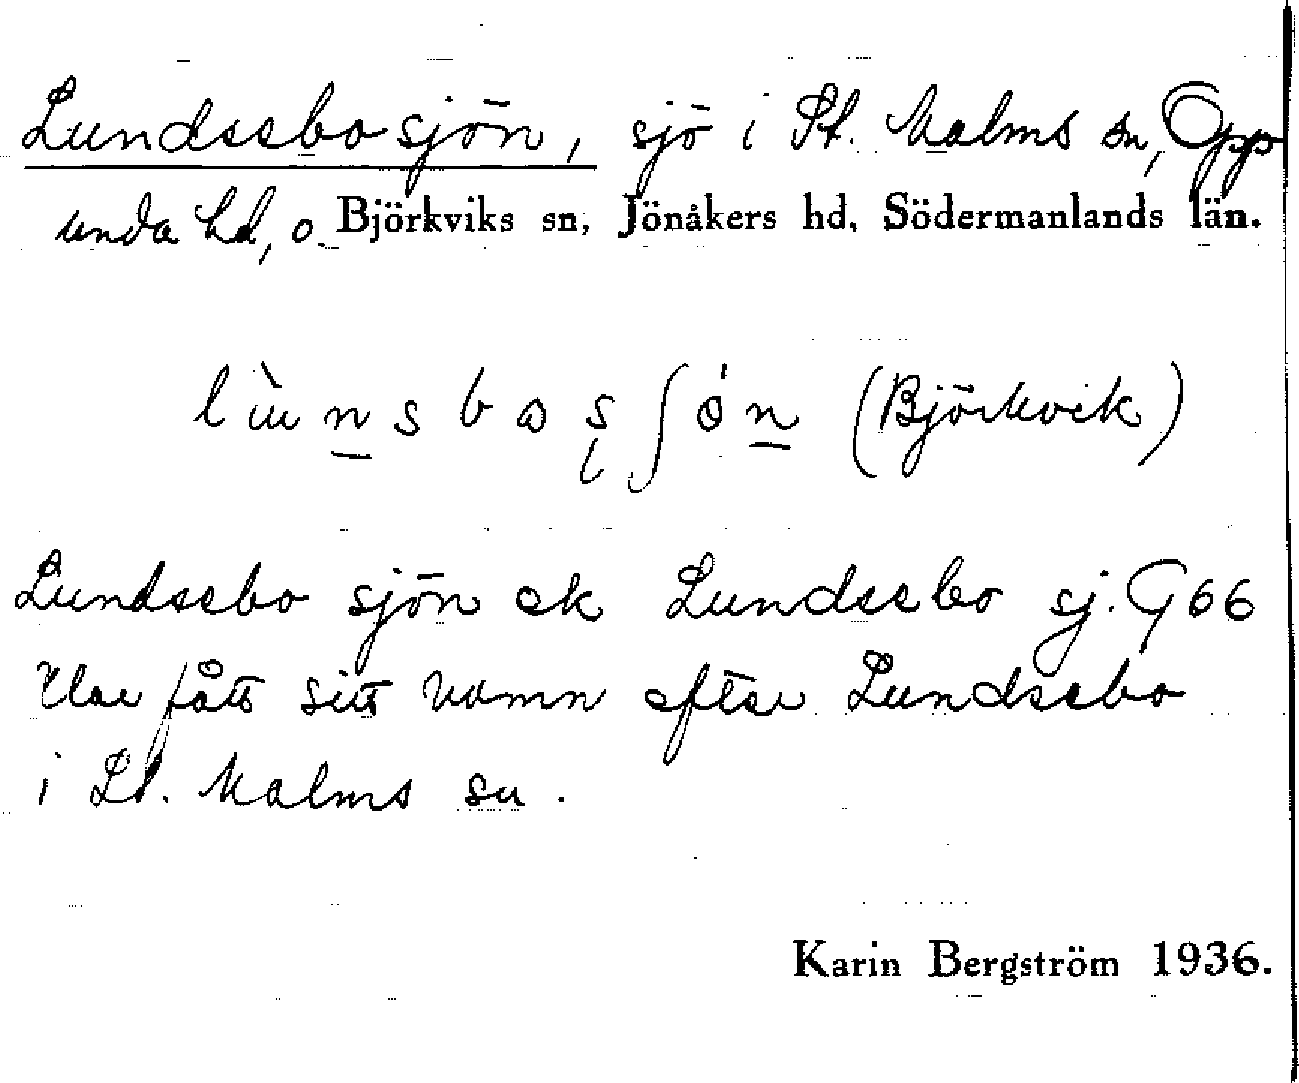 Lundssbosjön, sjö i St. Malms sn, Opp
unda hd, o. Björkviks sn, Jönåkers hd, Södermanlands län.
(Björkvik)
Lundssbo sjön ek Lundssbo sj. G 66
Har fått sitt namn efter Lundssbo
i St. Malms sn.
Karin Bergström 1936.